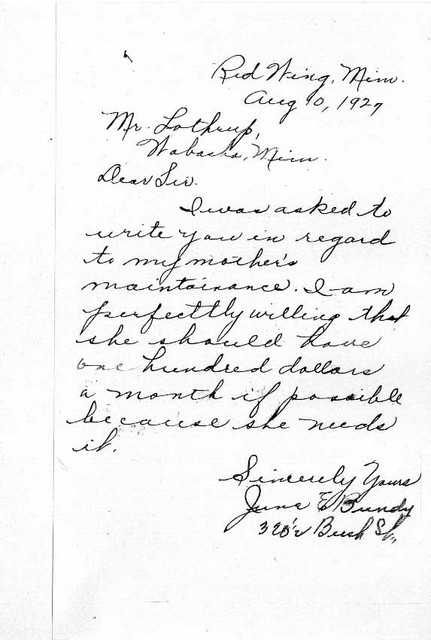 Red Wing, Minn.
Aug 10, 1927
Mr. Lothrup,
Wabasha, Minn.
Dear Sir.
I was asked to
write you in regard
to my mother's
maintainance. I am
perfectly willing that
she should have
one hundred dollars
a month if possible
because she needs
it.
Sincerely Yours
June E Bundy
St.,